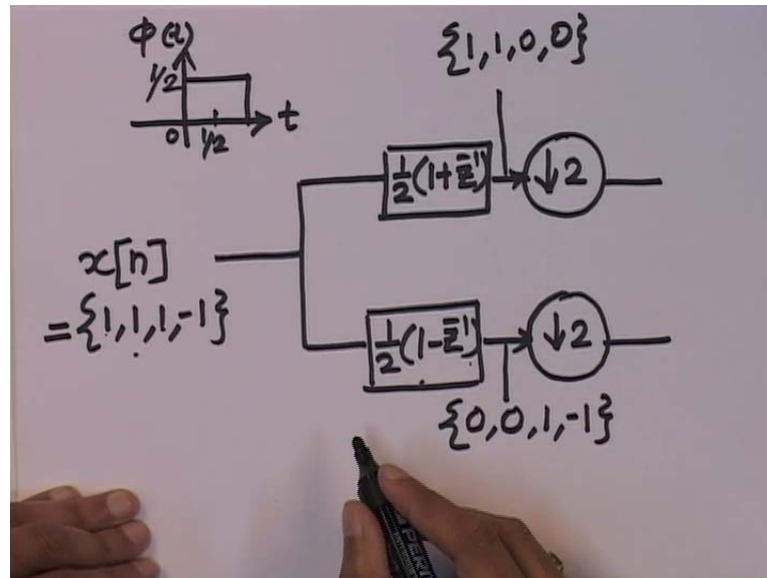 ϕ(t)
1/2
0 1/2 t
{1,1,0,0}
1/2(1+z⁻¹) ↓2
x[n]
={1,1,1,-1}
1/2(1-z⁻¹) ↓2
{0,0,1,-1}
PERM